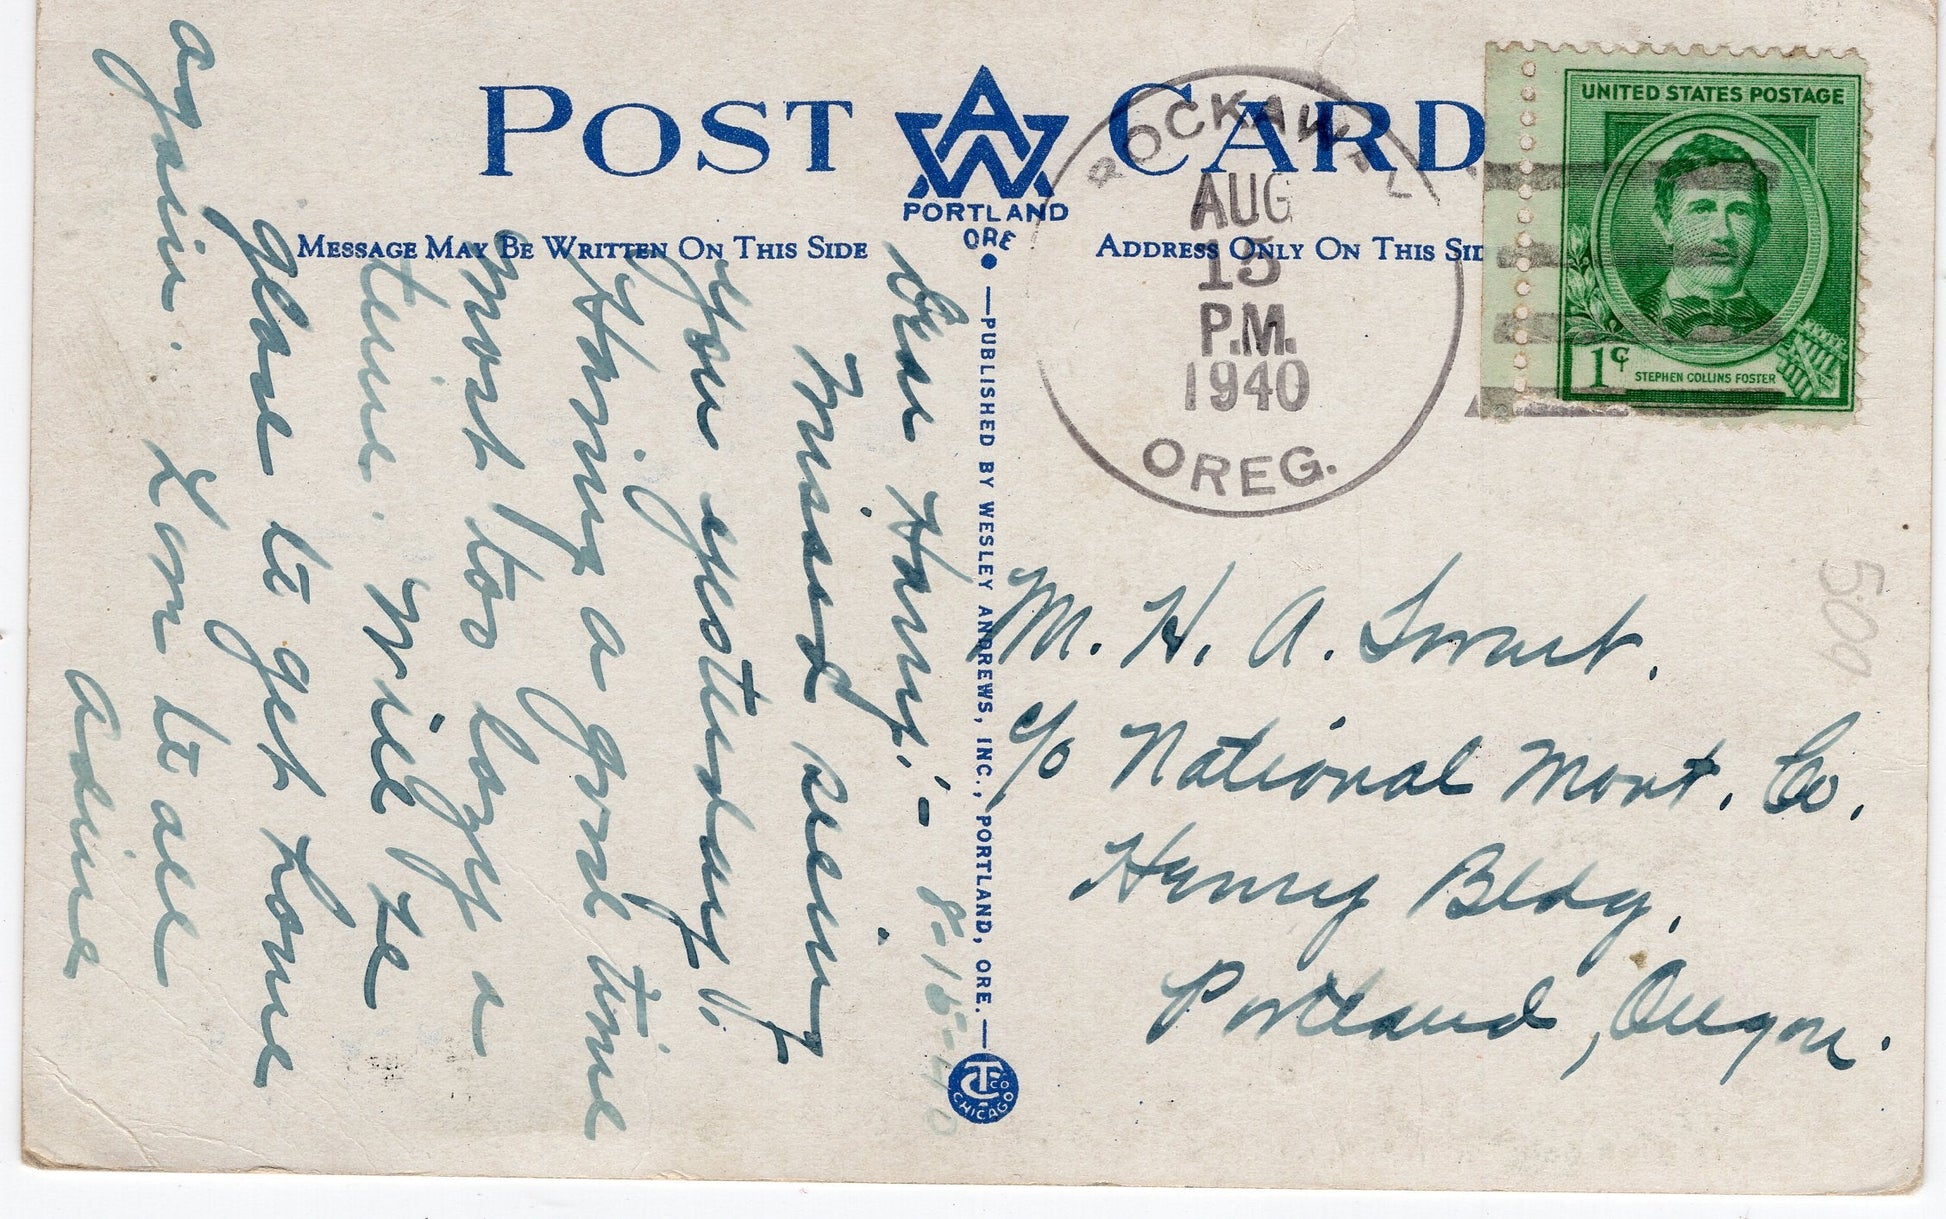 POST CARD
AW
PORTLAND
ORE
MESSAGE MAY BE WRITTEN ON THIS SIDE
ADDRESS ONLY ON THIS SID
ROCKAWAY
AUG
15
P.M.
1940
OREG.
UNITED STATES POSTAGE
1¢
STEPHEN COLLINS FOSTER
—PUBLISHED BY WESLEY ANDREWS, INC., PORTLAND, ORE.—
CTCO
CHICAGO
8-15-40
Dear Harry:-
Missed seeing
you yesterday.
Having a good time
most too lazy a
time. Will be
glad to get home
again.
to all
Adine
M. H. A. Swart.
c/o National Mort. Co.
Henry Bldg.
Portland, Oregon.
509